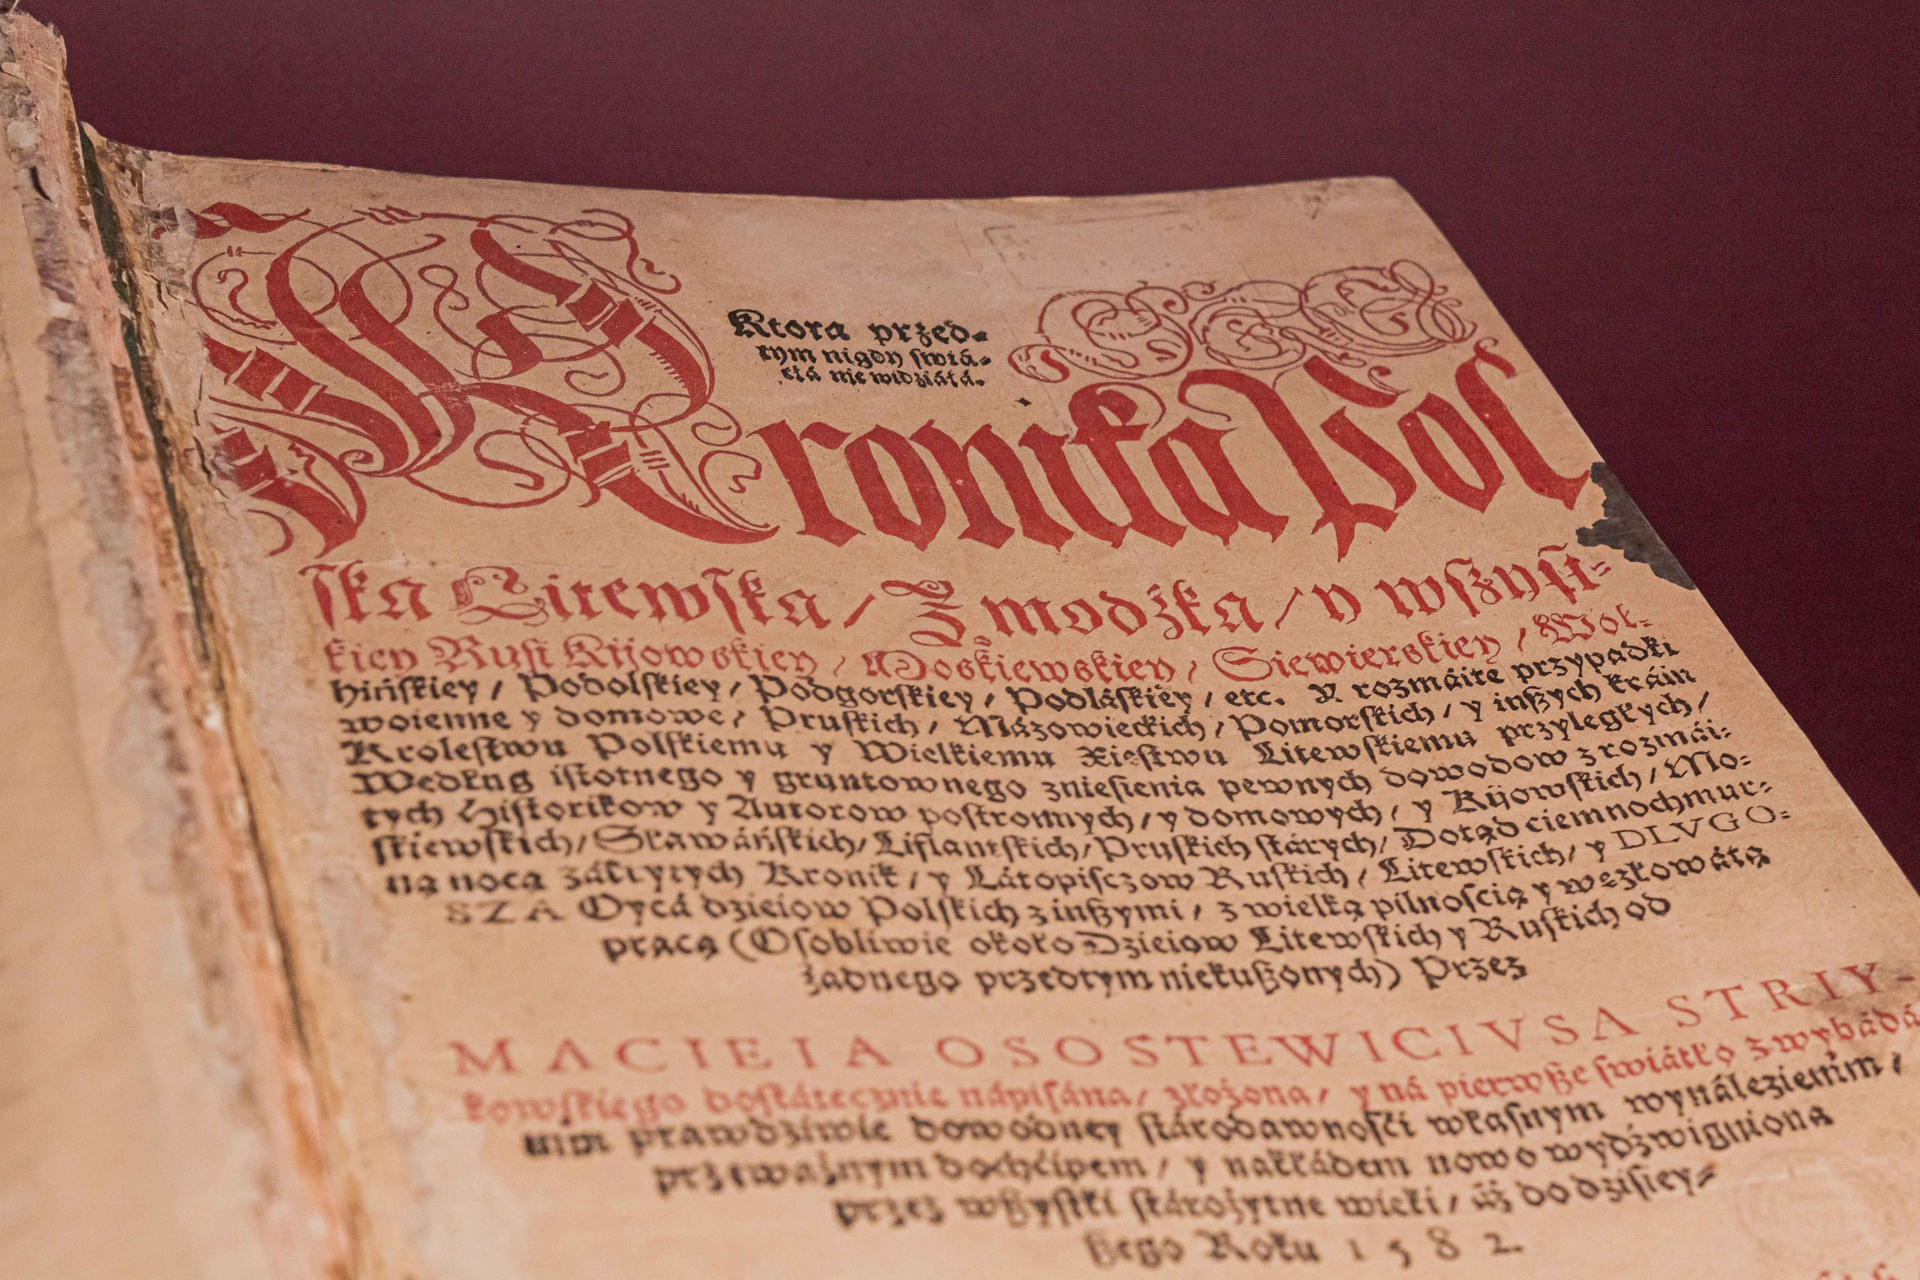 Ktora przed⸗
tym nigdy świá⸗
tłá nie widziáłá.
Kronika Pol
ſka Litewſka/ Żmodźka/ y wſzyſt⸗
kiey Ruſi Kijowskiey/ Moskiewskiey/ Siewierskiey/ Woł⸗
hińſkiey/ Podolſkiey/ Podgorſkiey/ Podláſkiey/ etc. Y rozmáite przypadki
woienne y domowe/ Pruſkich/ Mázowieckich/ Pomorſkich/ y inßych kráin
Kroleſtwu Polſkiemu y Wielkiemu Xięſtwu Litewſkiemu przyległych/
Według iſtotnego y gruntownego znieſienia pewnych dowodow z rozmái⸗
tych Hiſtorikow y Autorow poſtronnych/ y domowych/ y Kijowſkich/ Mo⸗
ſkiewſkich/ Sławáńſkich/ Liflantſkich/ Pruſkich ſtárych/ Dotąd ciemnochmur⸗
ną nocą zákrytych Kronik/ y Látopiſczow Ruſkich/ Litewſkich/ y DLVGO⸗
SZA Oycá dzieiow Polſkich z inßymi/ z wielką pilnoſcią y węzłowátą
pracą (Oſobliwie około Dzieiow Litewſkich y Ruſkich od
żadnego przedtym niekußonych) Przez
MACIEIA OSOSTEWICIVSA STRIY-
kowſkiego doſtátecznie nápiſána/ złożona/ y ná pierwße ſwiátło z wybádá
nim prawdziwie dowodney ſtárodawnoſći właſnym wynálezienim/
przeważnym dochćipem/ y nakłádem nowo wydźwigniona
przez wßyſtki ſtárożytne wieki/ áż do dziſiey⸗
ßego Roku 1582.